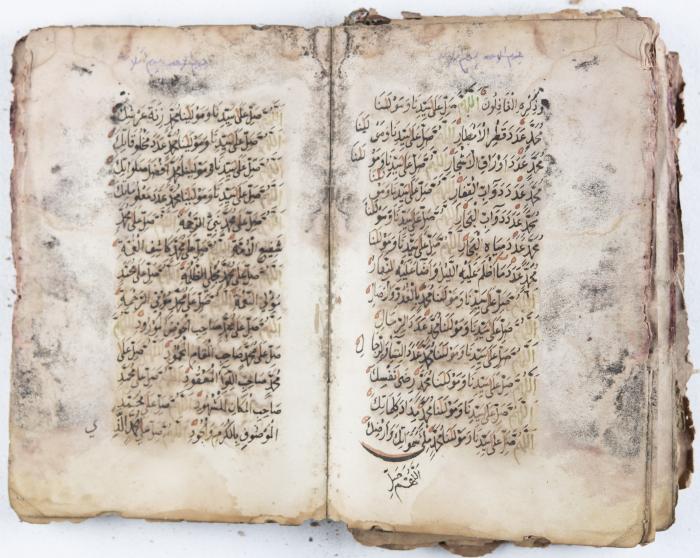 وذكره الغافلون اللهم صل على سيدنا ومولينا
محمد عدد قطر الامطار اللهم صل على سيدنا ومولينا
محمد عدد اوراق الاشجار اللهم صل على سيدنا ومولينا
محمد عدد دواب القفار اللهم صل على سيدنا ومولينا
محمد عدد دواب البحار اللهم صل على سيدنا ومولينا
محمد عدد مياه البحار اللهم صل على سيدنا ومولينا
محمد عدد ما اظلم عليه الليل واضاء عليه النهار
اللهم صل على سيدنا ومولينا محمد بالغدو والاصال
اللهم صل على سيدنا ومولينا محمد عدد الرمال
اللهم صل على سيدنا ومولينا محمد عدد النساء والرجال
اللهم صل على سيدنا ومولينا محمد رضى نفسك
اللهم صل على سيدنا ومولينا محمد مداد كلماتك
اللهم صل على سيدنا ومولينا محمد ملء سمواتك وارضك
اللهم صل
اللهم صل على سيدنا ومولينا محمد زنة عرشك
اللهم صل على سيدنا ومولينا محمد عدد مخلوقاتك
اللهم صل على سيدنا ومولينا محمد افضل صلواتك
اللهم صل على سيدنا ومولينا محمد عدد معلوماتك
اللهم صل على محمد نبي الرحمة اللهم صل على محمد
شفيع الامة اللهم صل على محمد كاشف الغمة
اللهم صل على محمد مجلي الظلمة اللهم صل على محمد
مولي النعمة اللهم صل على محمد مؤتي الرحمة
اللهم صل على محمد صاحب الحوض المورود اللهم
صل على محمد صاحب المقام المحمود اللهم صل على
محمد صاحب اللواء المعقود اللهم صل على محمد
صاحب المكان المشهود اللهم صل على محمد
الموصوف بالكرم والجود اللهم صل على محمد الذي